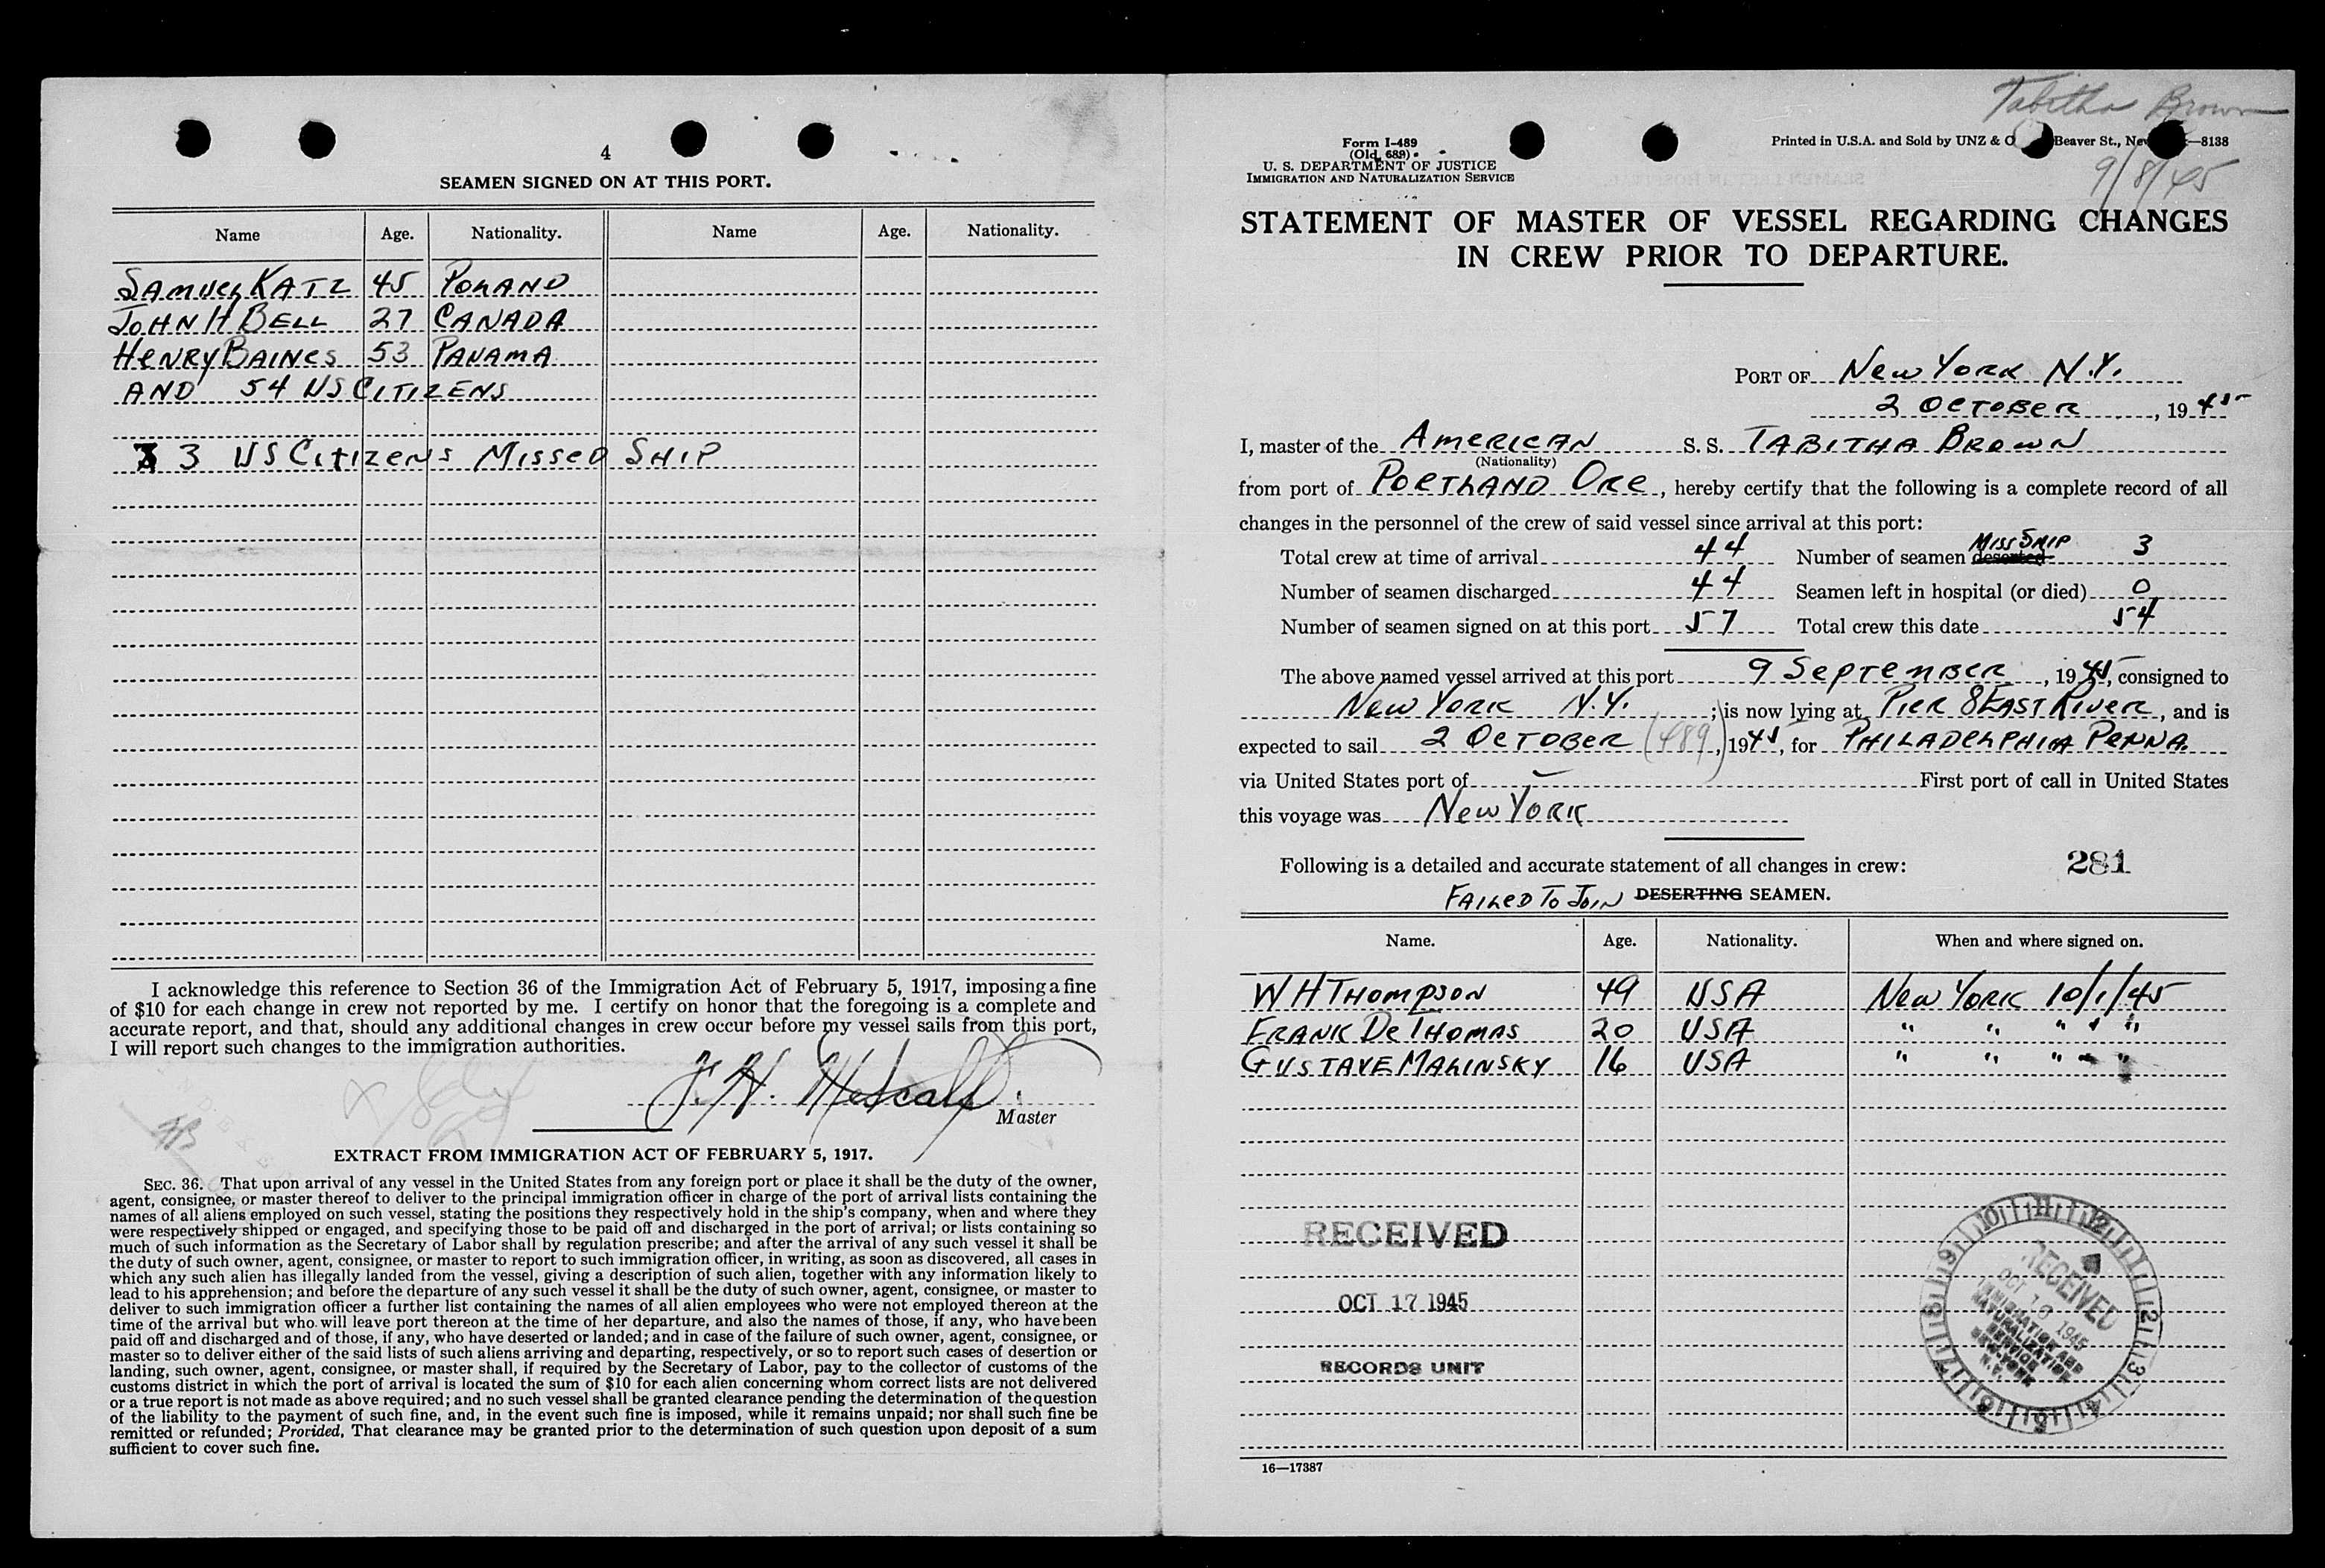 4
SEAMEN SIGNED ON AT THIS PORT.
Name Age. Nationality. Name Age. Nationality.
SAMUEL KATZ 45 POLAND
JOHN H BELL 27 CANADA
HENRY BAINES 53 PANAMA
AND 54 US CITIZENS
3 US CITIZENS MISSED SHIP
I acknowledge this reference to Section 36 of the Immigration Act of February 5, 1917, imposing a fine
of $10 for each change in crew not reported by me. I certify on honor that the foregoing is a complete and
accurate report, and that, should any additional changes in crew occur before my vessel sails from this port,
I will report such changes to the immigration authorities.
J. H. Metcalf.
Master
EXTRACT FROM IMMIGRATION ACT OF FEBRUARY 5, 1917.
SEC. 36. That upon arrival of any vessel in the United States from any foreign port or place it shall be the duty of the owner,
agent, consignee, or master thereof to deliver to the principal immigration officer in charge of the port of arrival lists containing the
names of all aliens employed on such vessel, stating the positions they respectively hold in the ship's company, when and where they
were respectively shipped or engaged, and specifying those to be paid off and discharged in the port of arrival; or lists containing so
much of such information as the Secretary of Labor shall by regulation prescribe; and after the arrival of any such vessel it shall be
the duty of such owner, agent, consignee, or master to report to such immigration officer, in writing, as soon as discovered, all cases in
which any such alien has illegally landed from the vessel, giving a description of such alien, together with any information likely to
lead to his apprehension; and before the departure of any such vessel it shall be the duty of such owner, agent, consignee, or master to
deliver to such immigration officer a further list containing the names of all alien employees who were not employed thereon at the
time of the arrival but who will leave port thereon at the time of her departure, and also the names of those, if any, who have been
paid off and discharged and of those, if any, who have deserted or landed; and in case of the failure of such owner, agent, consignee, or
master so to deliver either of the said lists of such aliens arriving and departing, respectively, or so to report such cases of desertion or
landing, such owner, agent, consignee, or master shall, if required by the Secretary of Labor, pay to the collector of customs of the
customs district in which the port of arrival is located the sum of $10 for each alien concerning whom correct lists are not delivered
or a true report is not made as above required; and no such vessel shall be granted clearance pending the determination of the question
of the liability to the payment of such fine, and, in the event such fine is imposed, while it remains unpaid; nor shall such fine be
remitted or refunded; Provided, That clearance may be granted prior to the determination of such question upon deposit of a sum
sufficient to cover such fine.
Tabitha Brown
9/8/45
Form I-489
(Old 689)
U. S. DEPARTMENT OF JUSTICE
IMMIGRATION AND NATURALIZATION SERVICE
Printed in U.S.A. and Sold by UNZ & Beaver St., —8138
STATEMENT OF MASTER OF VESSEL REGARDING CHANGES
IN CREW PRIOR TO DEPARTURE.
PORT OF New York N.Y.
2 OCTOBER, 1945
I, master of the AMERICAN S. S. TABITHA BROWN
(Nationality)
from port of PORTLAND ORE, hereby certify that the following is a complete record of all
changes in the personnel of the crew of said vessel since arrival at this port:
Total crew at time of arrival 44 Number of seamen deserted MISS SHIP 3
Number of seamen discharged 44 Seamen left in hospital (or died) 0
Number of seamen signed on at this port 57 Total crew this date 54
The above named vessel arrived at this port 9 SEPTEMBER, 1945, consigned to
New York N.Y. ; is now lying at PIER 8 EAST RIVER, and is
expected to sail 2 OCTOBER (489), 1945, for PHILADELPHIA PENNA.
via United States port of First port of call in United States
this voyage was New YORK
Following is a detailed and accurate statement of all changes in crew: 281
FAILED TO JOIN DESERTING SEAMEN.
Name. Age. Nationality. When and where signed on.
W H THOMPSON 49 USA New YORK 10/1/45
FRANK DE THOMAS 20 USA " " " " "
GUSTAVE MALINSKY 16 USA " " " " "
RECEIVED
OCT 17 1945
RECORDS UNIT
RECEIVED
OCT 10 1945
IMMIGRATION AND
NATURALIZATION
SERVICE
NEW YORK
N.Y.
16—17387